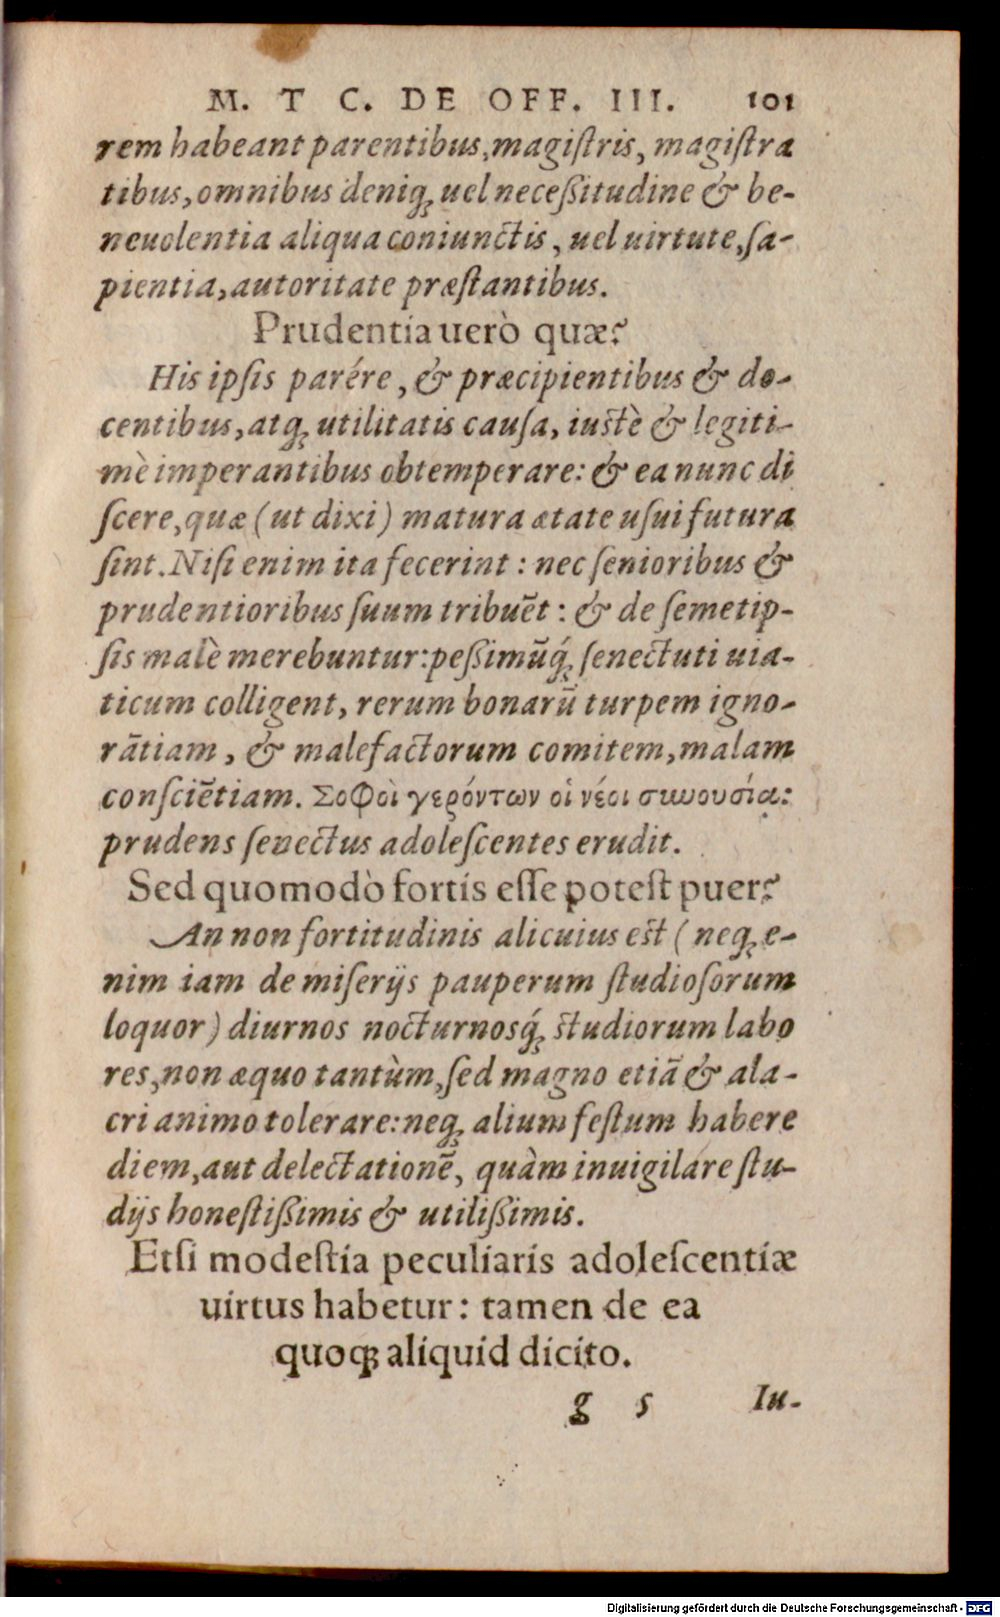 M. T C. DE OFF. III. 101
rem habeant parentibus, magiſtris, magiſtra
tibus, omnibus deniq; uel neceßitudine & be-
neuolentia aliqua coniunctis, uel uirtute, ſa-
pientia, autoritate præſtantibus.
Prudentia uerò quæ?
His ipſis parére, & præcipientibus & do-
centibus, atq; utilitatis cauſa, iustè & legiti-
mè imperantibus obtemperare: & ea nunc di
ſcere, quæ (ut dixi) matura ætate uſui futura
ſint. Niſi enim ita fecerint: nec ſenioribus &
prudentioribus ſuum tribuēt: & de ſemetip-
ſis malè merebuntur: peßimūq́; ſenectuti uia-
ticum colligent, rerum bonarū turpem igno-
rātiam, & malefactorum comitem, malam
conſciētiam. Σοφοὶ γερόντων οἱ νέοι συνουσίᾳ:
prudens ſenectus adoleſcentes erudit.
Sed quomodò fortis eſſe poteſt puer?
An non fortitudinis alicuius est (neq; e-
nim iam de miſerijs pauperum ſtudioſorum
loquor) diurnos nocturnosq́; studiorum labo
res, non æquo tantùm, ſed magno etiā & ala-
cri animo tolerare: neq; alium feſtum habere
diem, aut delectationē, quàm inuigilare ſtu-
dijs honeſtißimis & utilißimis.
Etſi modeſtia peculiaris adoleſcentiæ
uirtus habetur: tamen de ea
quoq; aliquid dicito.
g 5 Iu-
Digitalisierung gefördert durch die Deutsche Forschungsgemeinschaft - DFG